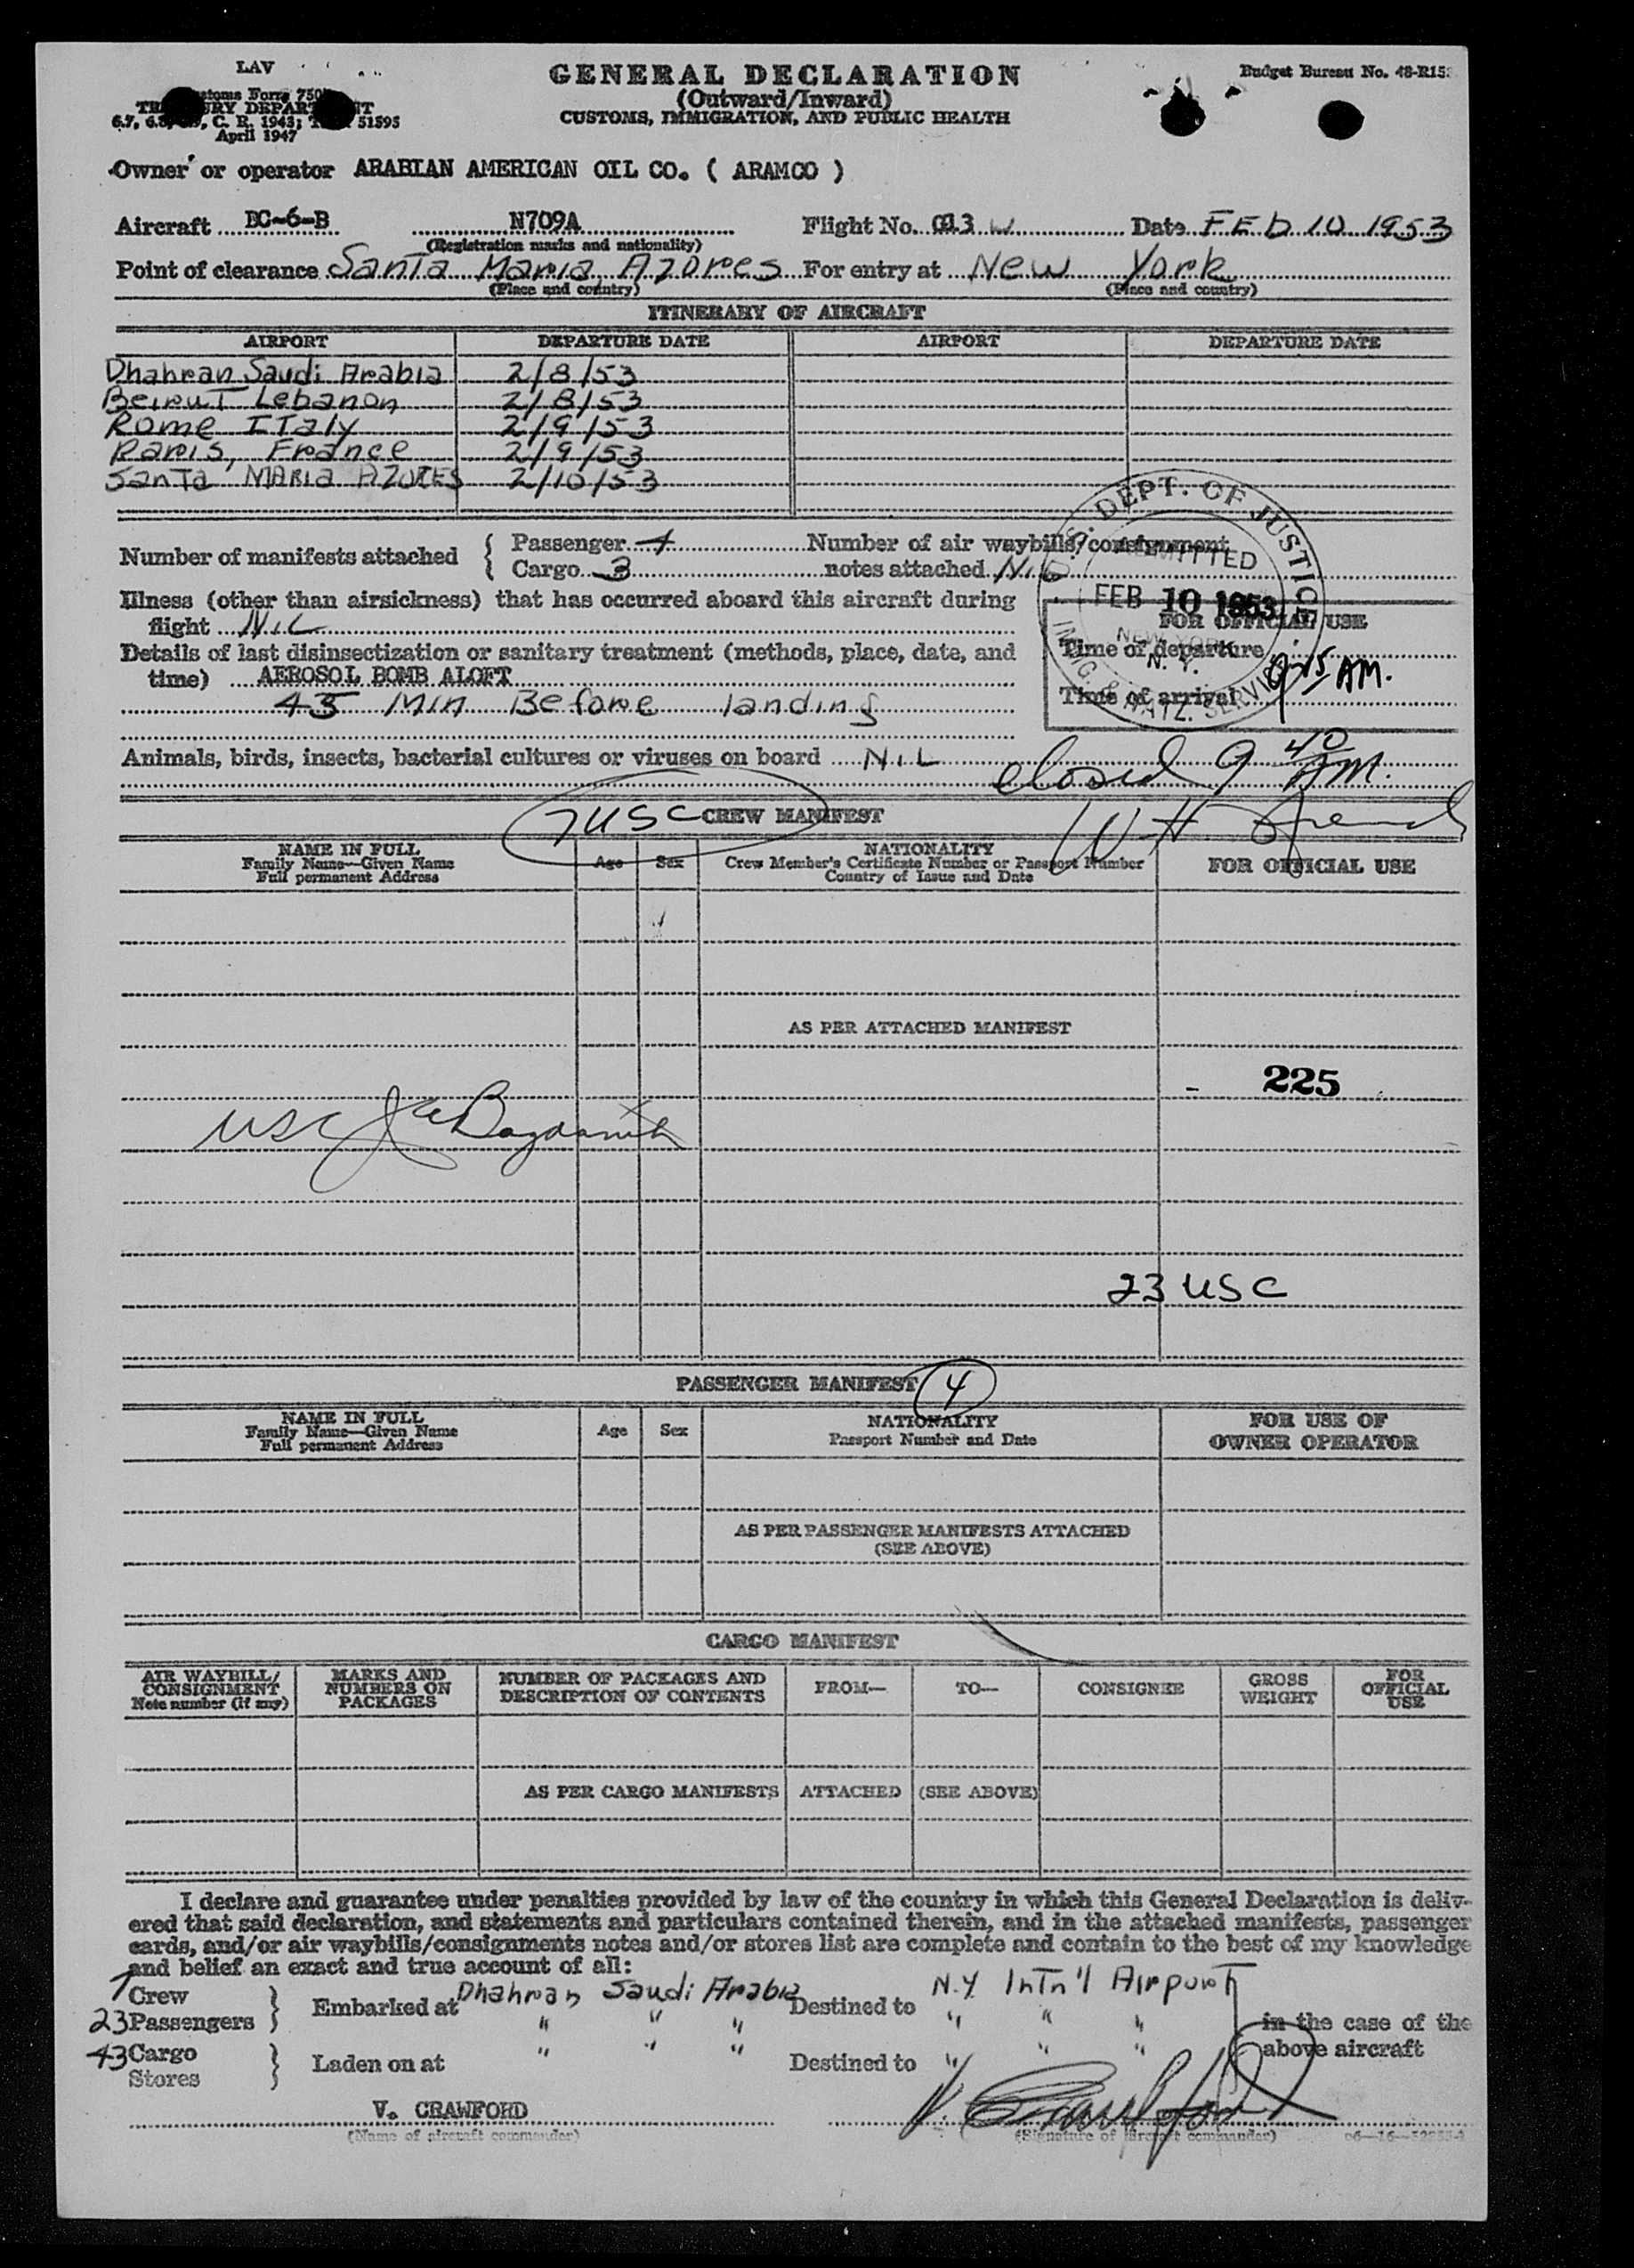 LAV
GENERAL DECLARATION
Budget Bureau No. 48-R15
(Outward/Inward)
CUSTOMS, IMMIGRATION, AND PUBLIC HEALTH
C. R. 1943; 51595
April 1947
Owner or operator ARABIAN AMERICAN OIL CO. ( ARAMCO )
Aircraft DC-6-B N709A Flight No. 013 W Date FEb 10 1953
(Registration marks and nationality)
Point of clearance Santa Maria Azores For entry at New York
(Place and country) (Place and country)
ITINERARY OF AIRCRAFT
AIRPORT DEPARTURE DATE AIRPORT DEPARTURE DATE
Dhahran Saudi Arabia 2/8/53
Beirut Lebanon 2/8/53
Rome Italy 2/9/53
Paris, France 2/9/53
Santa MARIA AZORES 2/10/53
U.S. DEPT. OF JUSTICE
ADMITTED
FEB 10 1953
NEW YORK
N. Y.
IMMIG. & NATZ. SERVICE
Number of manifests attached { Passenger 4 Number of air waybills/consignment
Cargo 3 notes attached Nil
Illness (other than airsickness) that has occurred aboard this aircraft during
flight NiL
FOR OFFICIAL USE
Details of last disinsectization or sanitary treatment (methods, place, date, and
Time of departure
time) AEROSOL BOMB ALOFT
Time of arrival 9 15 AM.
45 Min Before landing
Animals, birds, insects, bacterial cultures or viruses on board NiL
closed 9 40 AM.
7 USC CREW MANIFEST
NAME IN FULL
Family Name—Given Name
Full permanent Address
Age Sex
NATIONALITY
Crew Member's Certificate Number or Passport Number
Country of Issue and Date
FOR OFFICIAL USE
AS PER ATTACHED MANIFEST
225
USC
23 USC
PASSENGER MANIFEST 4
NAME IN FULL
Family Name—Given Name
Full permanent Address
Age Sex
NATIONALITY
Passport Number and Date
FOR USE OF
OWNER OPERATOR
AS PER PASSENGER MANIFESTS ATTACHED
(SEE ABOVE)
CARGO MANIFEST
AIR WAYBILL/
CONSIGNMENT
Note number (if any)
MARKS AND
NUMBERS ON
PACKAGES
NUMBER OF PACKAGES AND
DESCRIPTION OF CONTENTS
FROM— TO— CONSIGNEE
GROSS
WEIGHT
FOR
OFFICIAL
USE
AS PER CARGO MANIFESTS ATTACHED (SEE ABOVE)
I declare and guarantee under penalties provided by law of the country in which this General Declaration is deliv-
ered that said declaration, and statements and particulars contained therein, and in the attached manifests, passenger
cards, and/or air waybills/consignments notes and/or stores list are complete and contain to the best of my knowledge
and belief an exact and true account of all:
7 Crew
23 Passengers } Embarked at Dhahran Saudi Arabia Destined to N.Y. Intn'l Airport
" " " " " "
in the case of the
above aircraft
43 Cargo
Stores } Laden on at " " " Destined to " " "
V. CRAWFORD V. Crawford
(Name of aircraft commander) (Signature of aircraft commander)